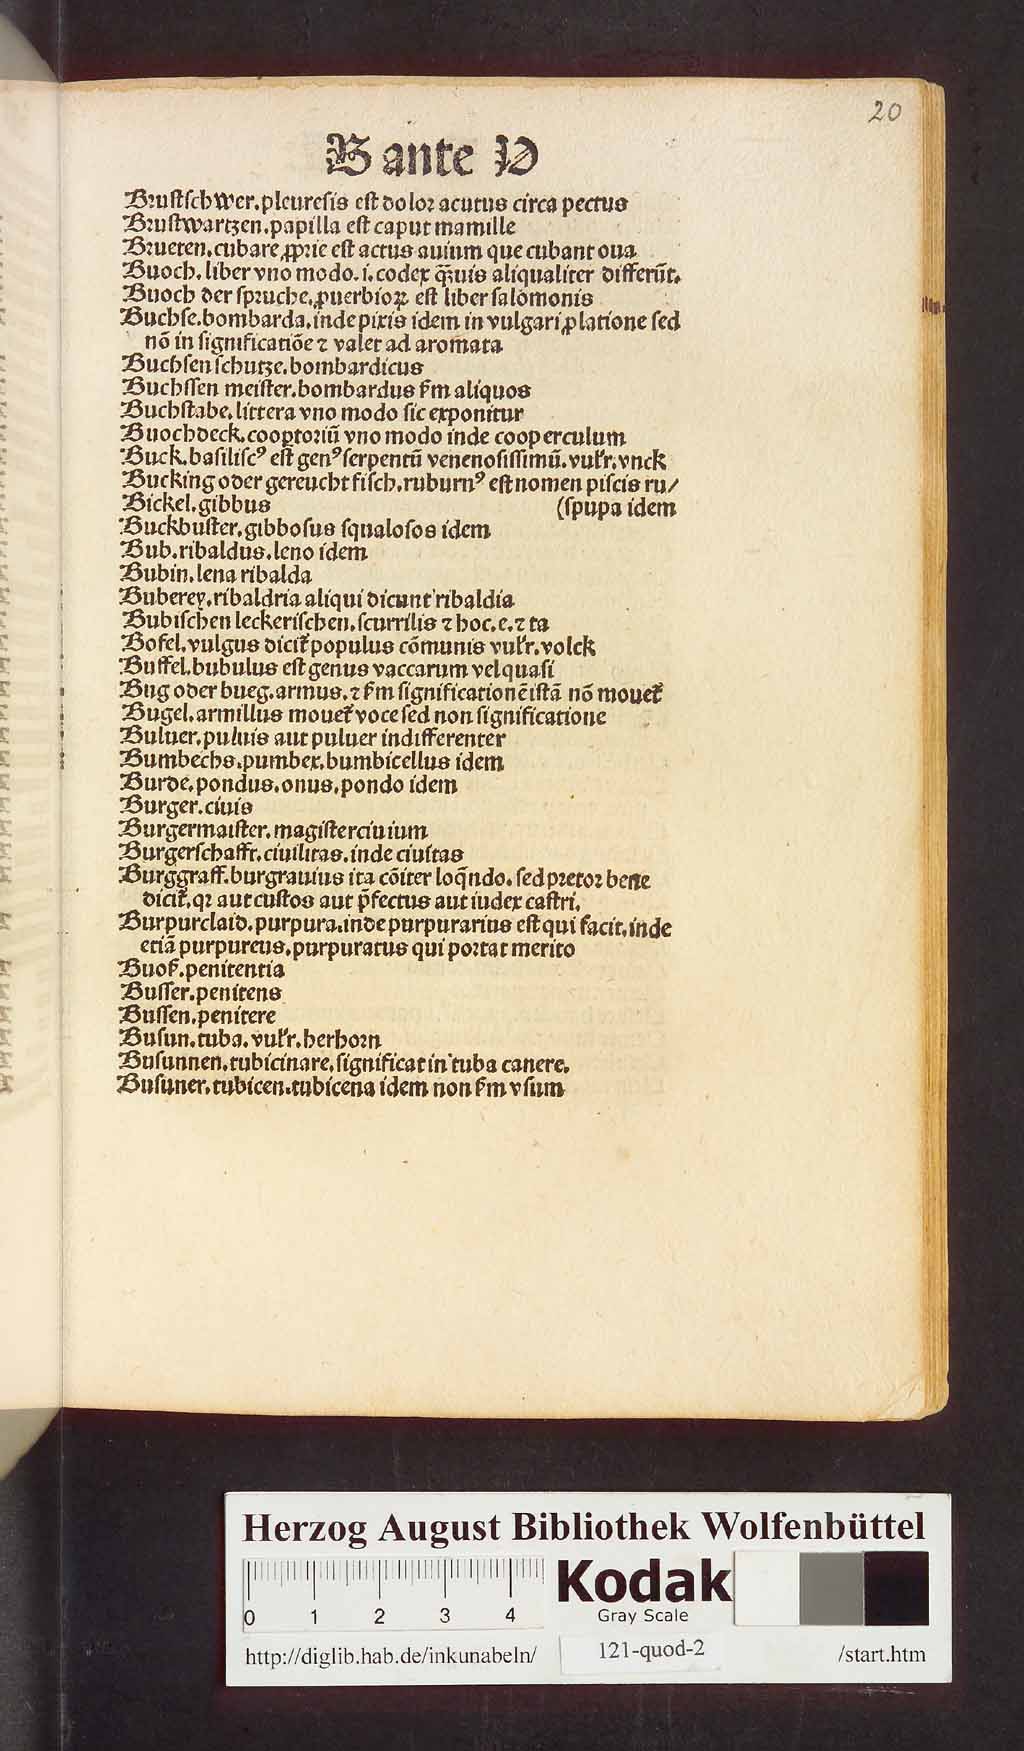 20
B ante V
Bruſtſchwer. pleureſis eſt dolor acutus circa pectus
Bruſtwartzen. papilla eſt caput mamille
Brueten. cubare ꝓprie eſt actus auium que cubant oua
Buoch. liber vno modo. i. codex q̄uis aliqualiter differūt.
Buoch der ſpruche. ꝓuerbioꝝ eſt liber ſalomonis
Buchſe. bombarda. inde pixis idem in vulgari ꝓlatione ſed
nō in ſignificatiōe ⁊ valet ad aromata
Buchſenſchutze. bombardicus
Buchſſen meiſter. bombardus ẜm aliquos
Buchſtabe. littera vno modo ſic exponitur
Buochdeck. cooptoriū vno modo inde cooperculum
Buck. baſiliſcꝰ eſt genꝰ ſerpentū venenoſiſſimū. vulr̄. vnck
Bucking oder gereucht fiſch. ruburnꝰ eſt nomen piſcis ru/
Bickel. gibbus (ſpupa idem
Buckbuſter. gibboſus ſqualoſos idem
Bub. ribaldus. leno idem
Bubin. lena ribalda
Buberey. ribaldria aliqui dicunt ribaldia
Bubiſchen leckeriſchen. ſcurrilis ⁊ hoc. e. ⁊ ta
Bofel. vulgus dicit᷑ populus cōmunis vulr̄. volck
Buffel. bubulus eſt genus vaccarum vel quaſi
Bug oder bueg. armus. ⁊ ẜm ſignificationē iſtā nō mouet᷑
Bugel. armillus mouet᷑ voce ſed non ſignificatione
Buluer. puluis aut puluer indifferenter
Bumbechs. pumbex. bumbicellus idem
Burde. pondus. onus. pondo idem
Burger. ciuis
Burgermaiſter. magiſter ciuium
Burgerſchafft. ciuilitas. inde ciuitas
Burggraff. burgrauius ita cōiter loq̄ndo. ſed pretor bene
dicit᷑. qꝛ aut cuſtos aut p̄fectus aut iudex caſtri.
Burpurclaid. purpura. inde purpurarius eſt qui facit. inde
etiā purpureus. purpuratus qui portat merito
Buoẜ. penitentia
Buſſer. penitens
Buſſen. penitere
Buſun. tuba. vulr̄. herhorn
Buſunnen. tubicinare. ſignificat in tuba canere.
Buſuner. tubicen. tubicena idem non ẜm vſum
Herzog August Bibliothek Wolfenbüttel
0 1 2 3 4
Kodak
Gray Scale
http://diglib.hab.de/inkunabeln/ 121-quod-2 /start.htm